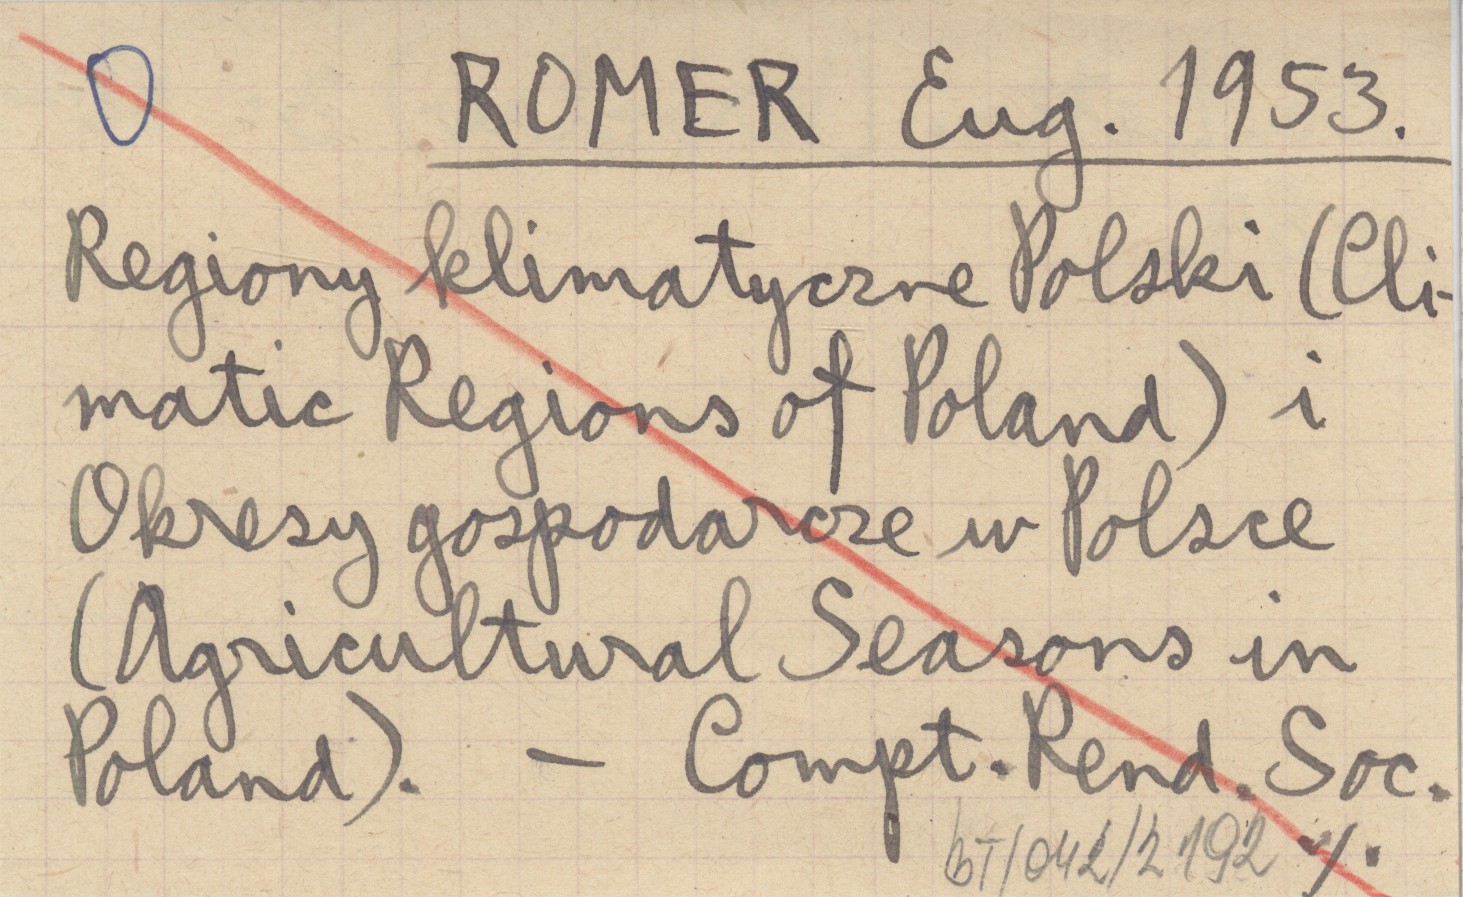 ROMER Eug. 1953.
Regiony klimatyczne Polski (Cli-
matic Regions of Poland) i
Okresy gospodarcze w Polsce
(Agricultural Seasons in
Poland). — Compt. Rend. Soc.
bT/042/2192 ·/.